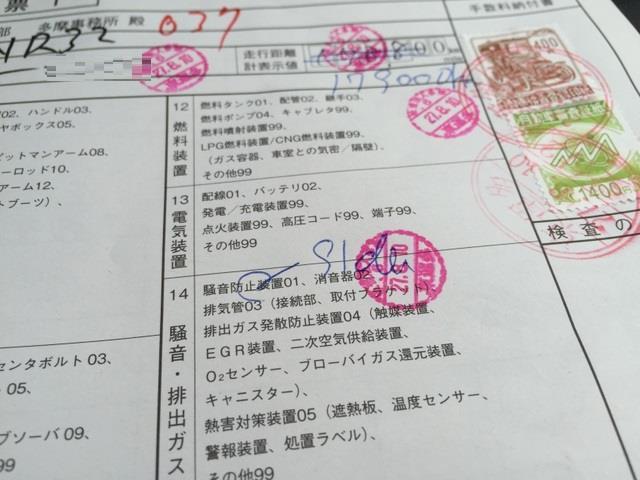 票
部 多摩事務所 殿
手数料納付書
037
走行距離
計表示値
179000
27.8.10
02、ハンドル03、
ヤボックス05、
ピットマンアーム08、
ーロッド10、
アーム12、
トブーツ)、
12 燃料装置
燃料タンク01、配管02、継手03、
燃料ポンプ04、キャブレタ99、
燃料噴射装置99、
LPG燃料装置/CNG燃料装置99、
(ガス容器、車室との気密/隔壁)、
その他99
400
1400
検査の
13 電気装置
配線01、バッテリ02、
発電/充電装置99、
点火装置99、高圧コード99、端子99、
その他99
27.8.10
14 騒音・排出ガス
騒音防止装置01、消音器02、
排気管03(接続部、取付ブラケット)、
排出ガス発散防止装置04(触媒装置、
EGR装置、二次空気供給装置、
O₂センサー、ブローバイガス還元装置、
キャニスター)、
熱害対策装置05(遮熱板、温度センサー、
警報装置、処置ラベル)、
その他99
センタボルト03、
ト05、
ブソーバ09、
99